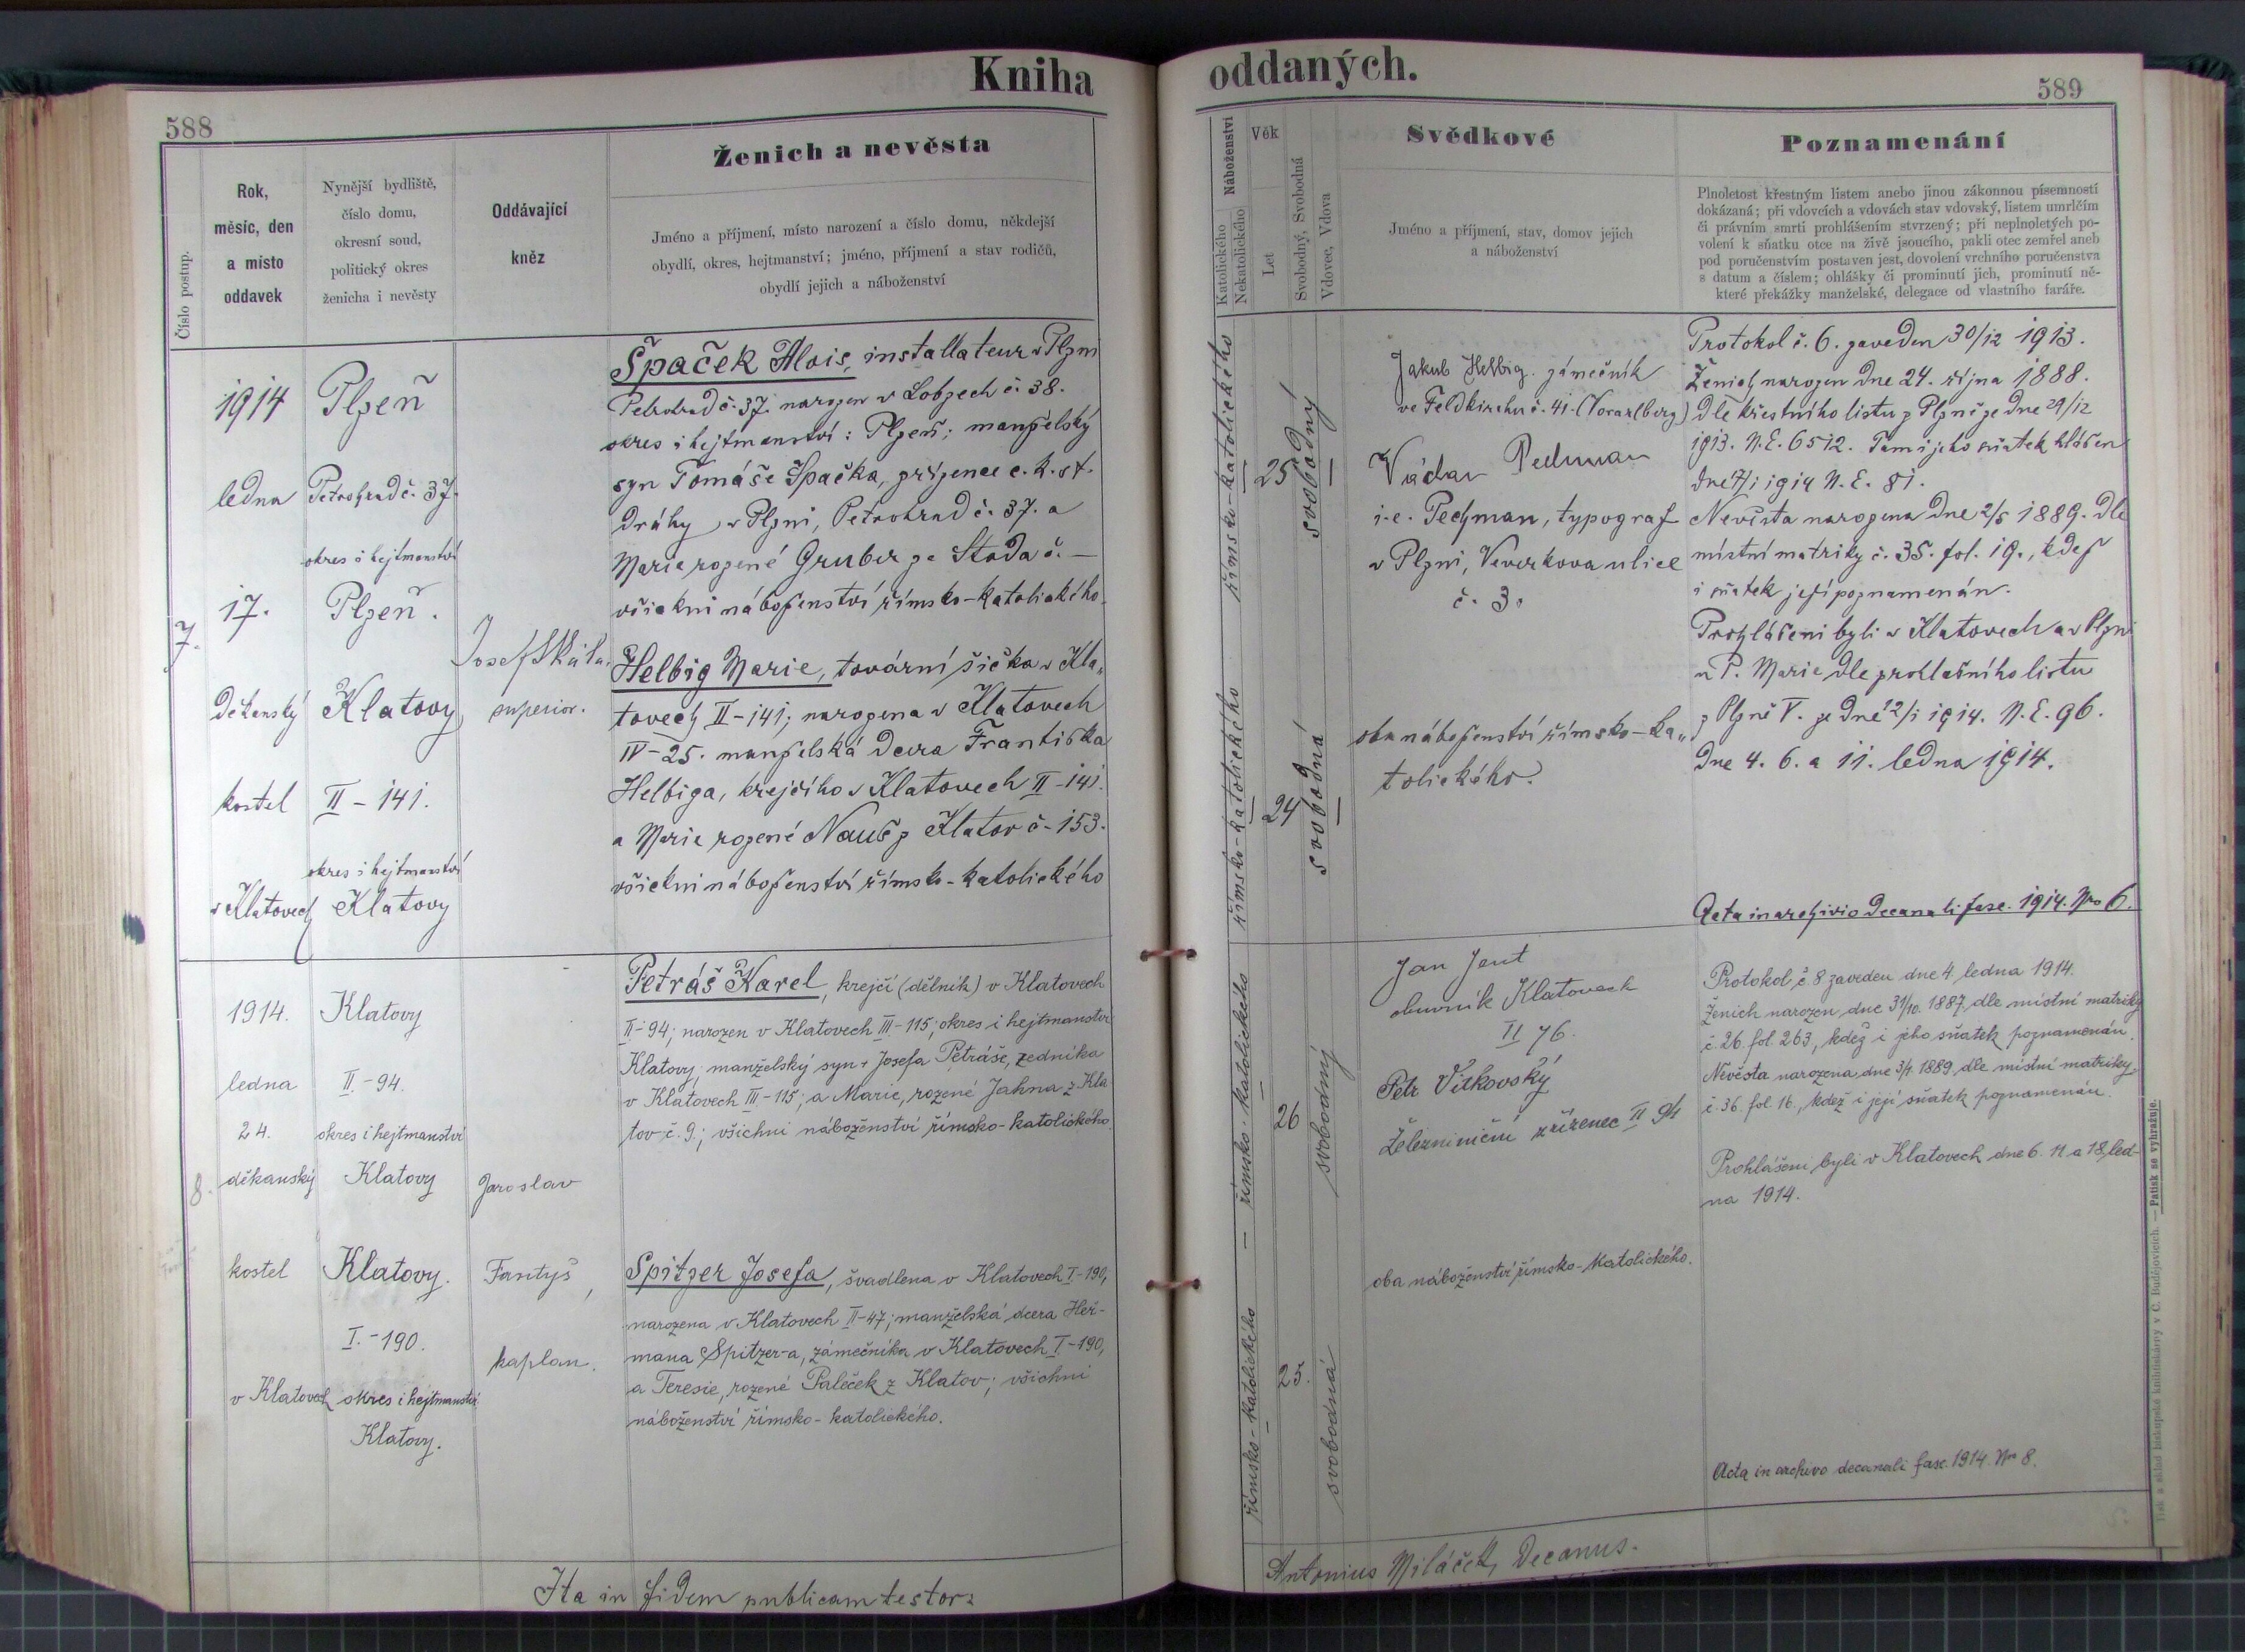 Kniha
588
Číslo postup.
Rok,
měsíc, den
a místo
oddavek
Nynější bydliště,
číslo domu,
okresní soud,
politický okres
ženicha i nevěsty
Oddávající
kněz
Ženich a nevěsta
Jméno a příjmení, místo narození a číslo domu, někdejší
obydlí, okres, hejtmanství; jméno, příjmení a stav rodičů,
obydlí jejich a náboženství
7.
1914
ledna
17.
děkanský
kostel
v Klatovech
Plzeň
Petrohrad č. 37.
okres i hejtmanství
Plzeň.
Klatovy
II - 141.
okres i hejtmanství
Klatovy
Josef Škála,
superior.
Špaček Alois, installateur v Plzni
Petrohrad č. 37. narozen v Lobzech č. 38.
okres i hejtmanství: Plzeň; manželský
syn Tomáše Špačka, zřízence c. k. st.
dráhy v Plzni, Petrohrad č. 37. a
Marie rozené Gruber ze Stoda č. —
všickni náboženství římsko-katolického.
Helbig Marie, tovární šička v Kla„
tovech II - 141; narozena v Klatovech
IV - 25. manželská dcera Františka
Helbiga, krejčího v Klatovech II - 141.
a Marie rozené Nauš z Klatov č - 153.
všickni náboženství římsko-katolického
8.
1914.
ledna
24.
děkanský
kostel
v Klatovech
Klatovy
II. - 94.
okres i hejtmanství
Klatovy
Klatovy.
I. - 190.
okres i hejtmanství
Klatovy.
Jaroslav
Fantyš,
kaplan.
Petráš Karel, krejčí (dělník) v Klatovech
II - 94; narozen v Klatovech III - 115; okres i hejtmanství
Klatovy; manželský syn + Josefa Petráše, zedníka
v Klatovech III - 115; a Marie, rozené Jahna z Kla
tov č. 9.; všichni náboženství římsko-katolického.
Spitzer Josefa, švadlena v Klatovech I - 190,
narozena v Klatovech II - 47; manželská dcera Heř-
mana Spitzer-a, zámečníka v Klatovech I - 190,
a Teresie, rozené Paleček z Klatov; všichni
náboženství římsko-katolického.
Ita in fidem publicam testor:
oddaných.
589
Náboženství
Katolického
Nekatolického
Věk
Let
Svobodný, Svobodná
Vdovec, Vdova
Svědkové
Jméno a příjmení, stav, domov jejich
a náboženství
Poznamenání
Plnoletost křestným listem anebo jinou zákonnou písemností
dokázaná; při vdovcích a vdovách stav vdovský, listem umrlčím
či právním smrti prohlášením stvrzený; při neplnoletých po-
volení k sňatku otce na živě jsoucího, pakli otec zemřel aneb
pod poručenstvím postaven jest, dovolení vrchního poručenstva
s datum a číslem; ohlášky či prominutí jich, prominutí ně-
které překážky manželské, delegace od vlastního faráře.
římsko-katolického
25
svobodný
římsko-katolického
24
svobodná
Jakub Helbig. zámečník
ve Feldkirchu č. 41. (Vorarlberg)
Václav Pechman
i. e. Pechman, typograf
v Plzni, Veverkova ulice
č. 3.
oba náboženství římsko-ka„
tolického.
Protokol č. 6. zaveden 30/12 1913.
Ženich narozen dne 24. října 1888.
dle křestního listu z Plzně ze dne 29/12
1913. N. E. 6512. Tam i jeho sňatek hlášen
dne 17/1 1914 N. E. 81.
Nevěsta narozena dne 2/5 1889. dle
místní matriky č. 35. fol. 19., kdež
i sňatek její poznamenán.
Prohlášeni byli v Klatovech a v Plzni
u P. Marie dle prohlašního listu
z Plzně V. ze dne 12/1 1914. N. E. 96.
dne 4. 6. a 11. ledna 1914.
Acta in archivio decanali fasc. 1914. Nro 6.
římsko-katolického
26
svobodný
římsko-katolického
25.
svobodná
Jan Jent
obuvník Klatovech
II 76.
Petr Vítkovský
Železniniční zřízenec II 94
oba náboženství římsko-katolického.
Protokol č. 8 zaveden dne 4. ledna 1914.
Ženich narozen dne 31/10. 1887, dle místní matriky
č. 26. fol. 263, kdež i jeho sňatek poznamenán.
Nevěsta narozena dne 3/4. 1889, dle místní matriky
č. 36. fol. 16., kdež i její sňatek poznamenán.
Prohlášeni byli v Klatovech dne 6. 11. a 18. led-
na 1914.
Acta in archivo decanali fasc. 1914. Nro 8.
Antonius Miláček, Decanus.
Tisk a sklad biskupské knihtiskárny v Č. Budějovicích. — Patisk se vyhražuje.